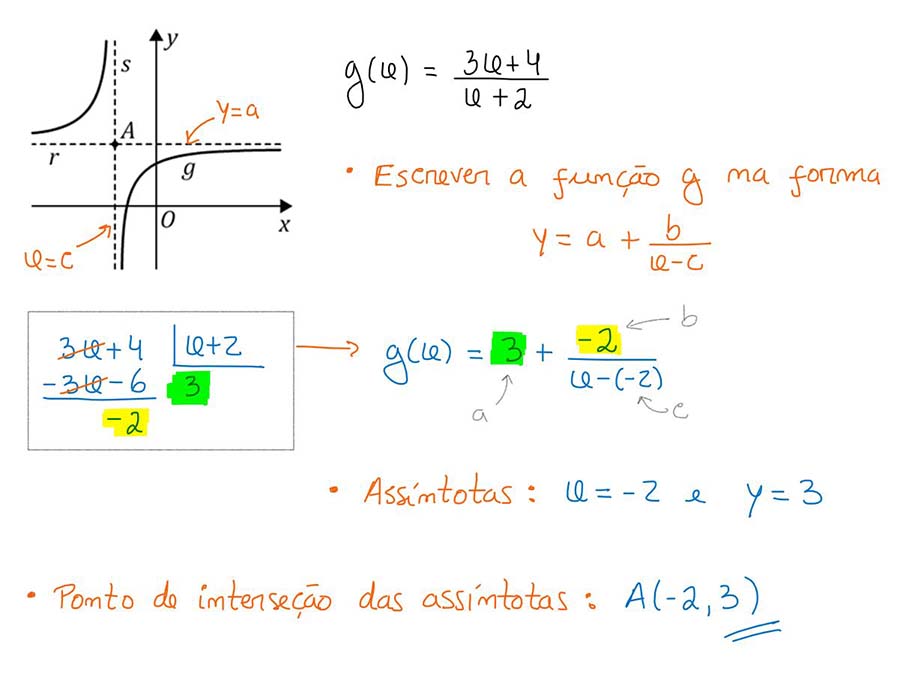 y
s
A
y=a
r
g
O
x
x=c
g(x) = (3x+4)/(x+2)
• Escrever a função g na forma
y = a + b/(x-c)
3x+4 | x+2
-3x-6 3
-2
g(x) = 3 + -2/(x-(-2))
b
a
c
• Assíntotas: x=-2 e y=3
• Ponto de interseção das assíntotas: A(-2,3)